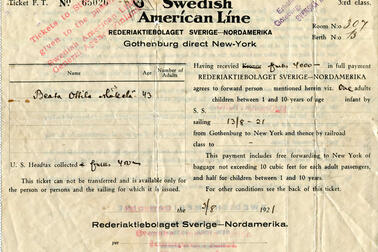 Ticket F. T. № 65026
3rd class.
Swedish
American Line
REDERIAKTIEBOLAGET SVERIGE–NORDAMERIKA
Gothenburg direct New-York
Room No 307
Birth No
Name
Age
Number of Adults
Beata Ottilia
43
Having received Kronor 4000— in full payment
REDERIAKTIEBOLAGET SVERIGE—NORDAMERIKA
agrees to forward person mentioned herein viz. One adults
children between 1 and 10 years of age infant by
S. S.
sailing 13/8-21
from Gothenburg to New York and thence by railroad
class to -
This payment includes free forwarding to New York of
baggage not exceeding 10 cubic feet for each adult passengers,
and half for children between 1 and 10 years.
For other conditions see the back of this ticket.
U. S. Headtax collected
This ticket can not be transferred and is available only for
the person or persons and the sailing for which it is issued.
the 2/8 1921
Rederiaktiebolaget Sverige—Nordamerika.
per